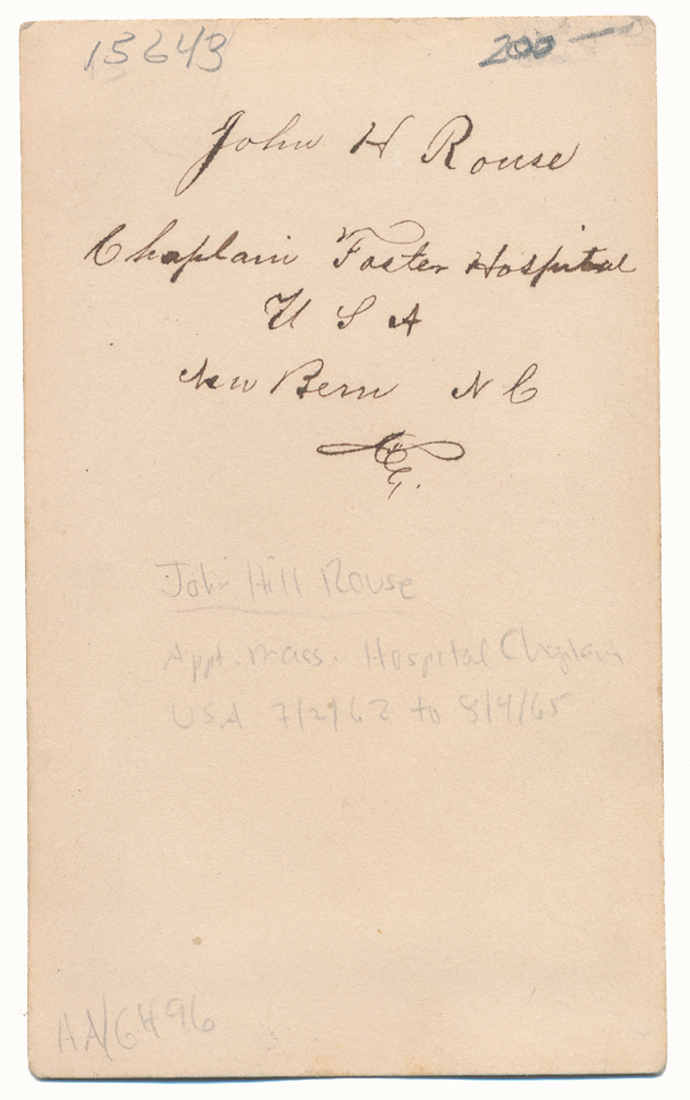 15643 200 —
John H Rouse
Chaplain Foster Hospital
U S A
New Bern N C
John Hill Rouse
Appt. Mass. Hospital Chaplain
USA 7/2/62 to 8/4/65